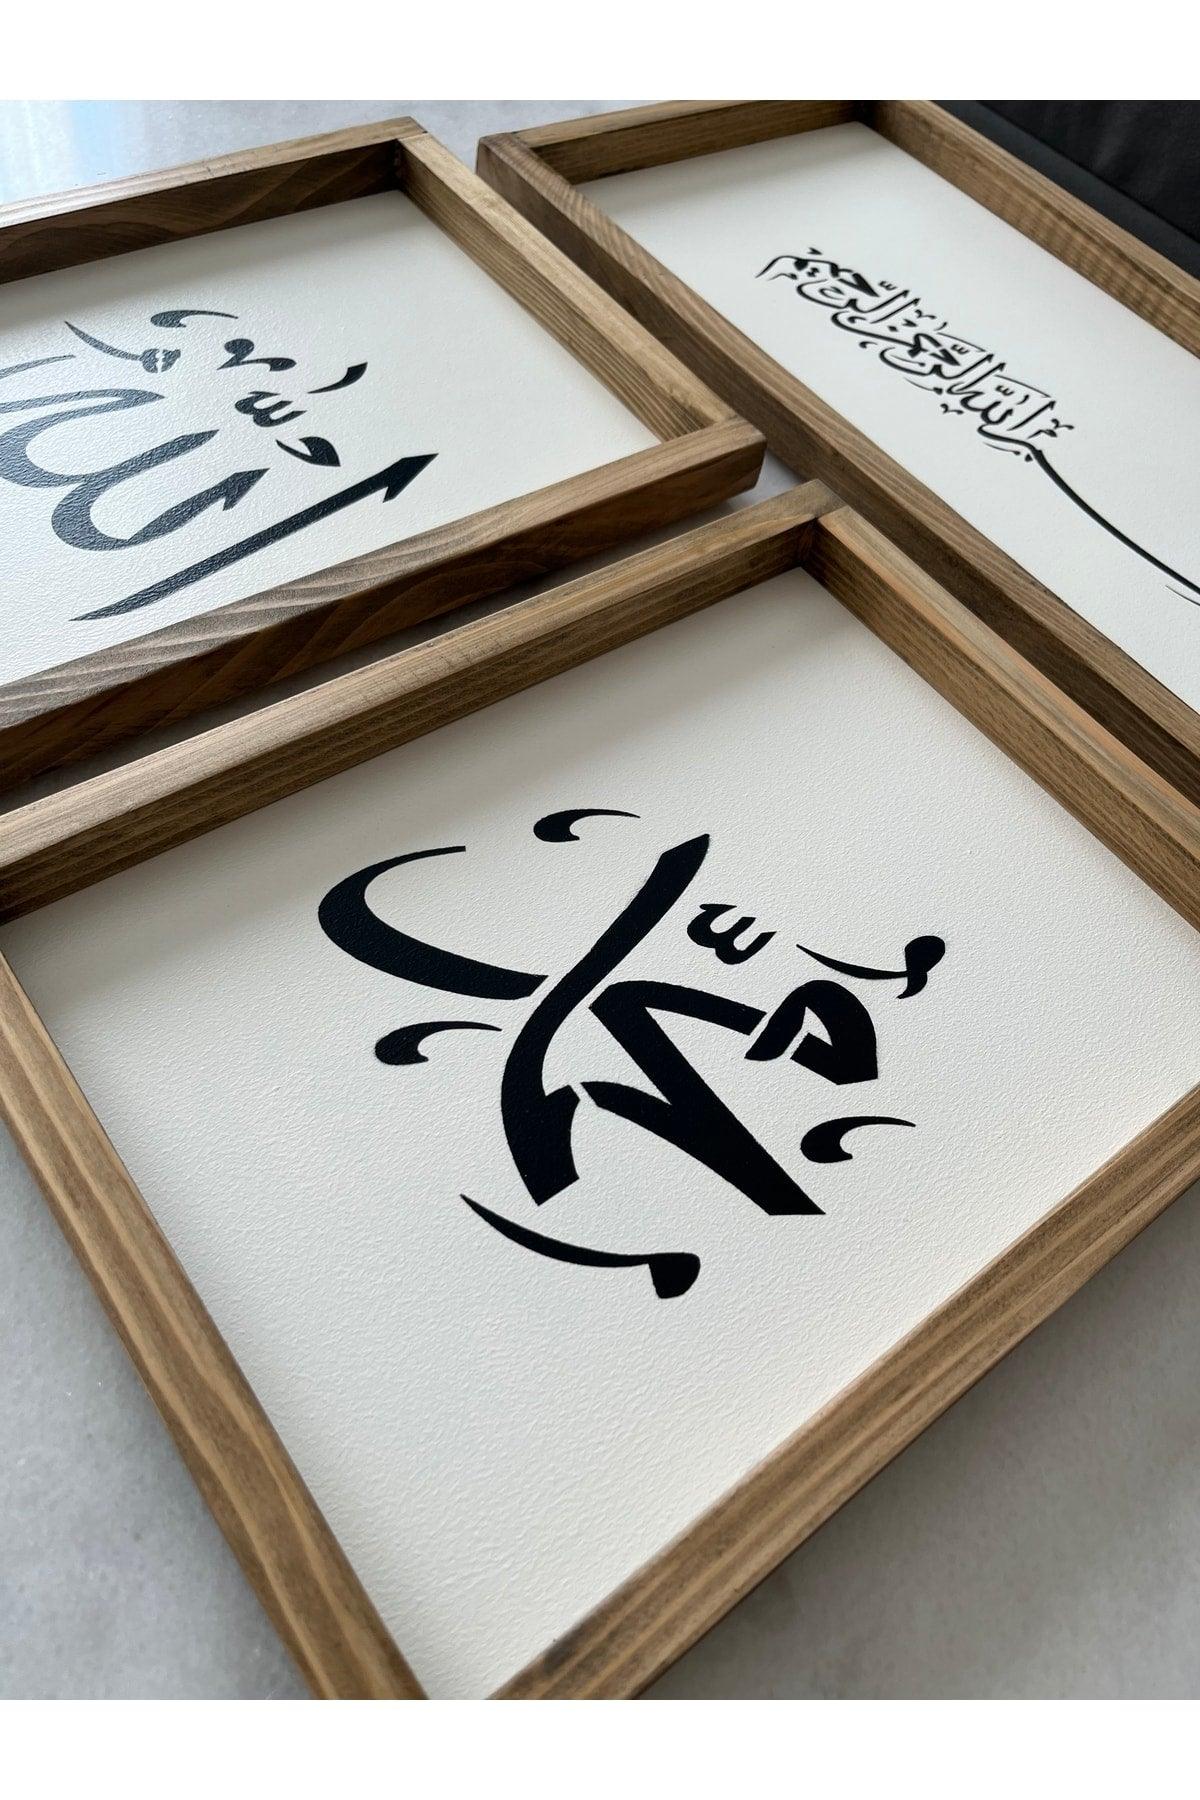 الله
بسم الله الرحمن الرحيم
محمد